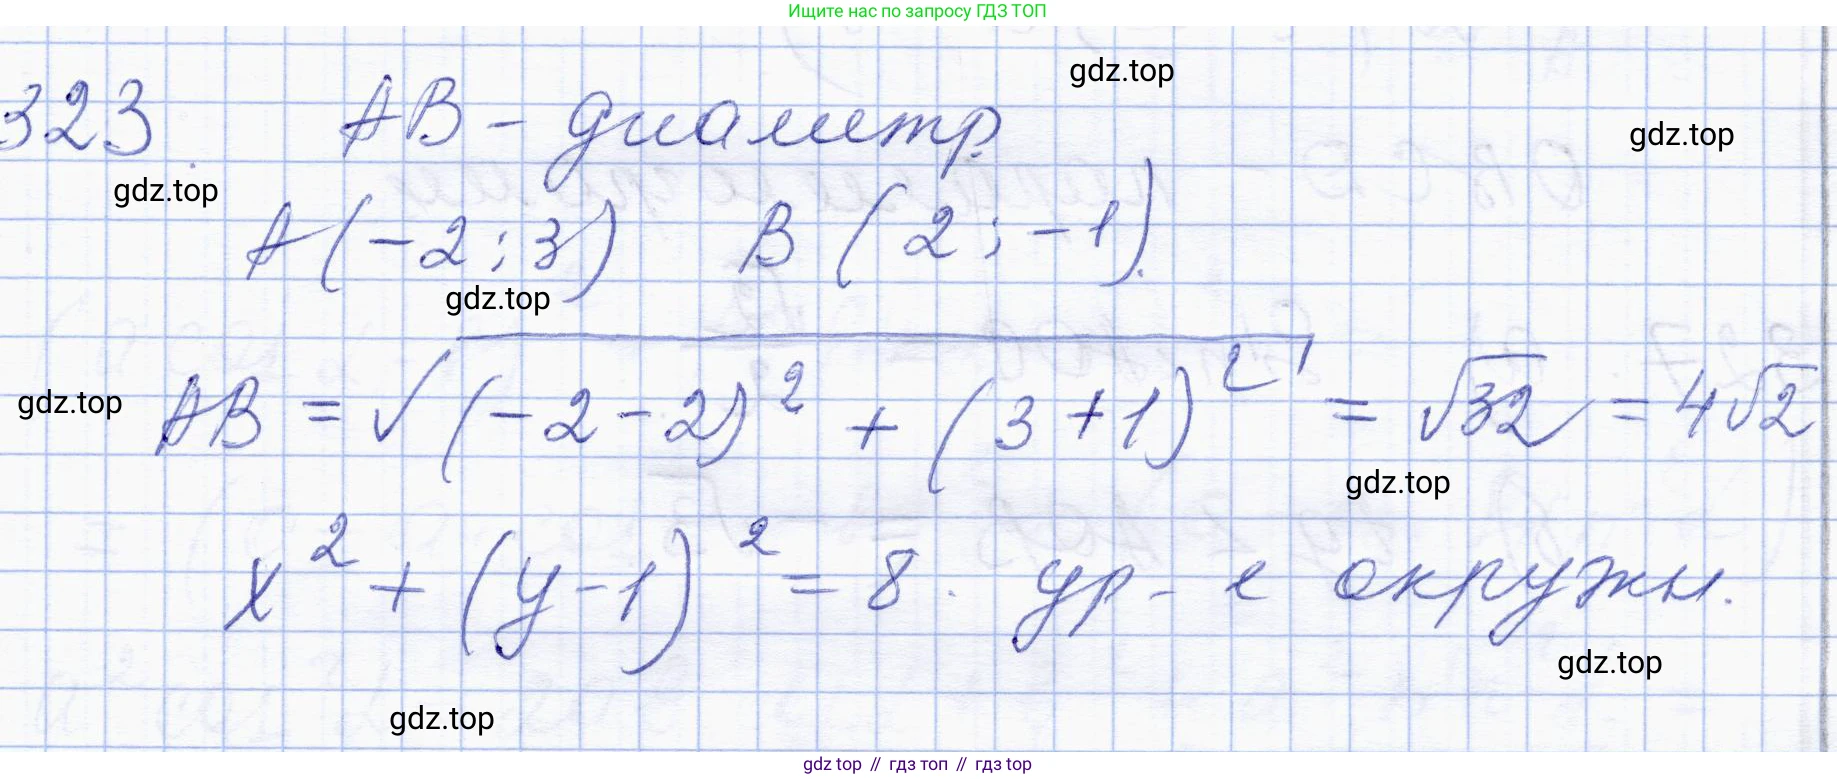 Ищите нас по запросу ГДЗ ТОП
gdz.top
323. АВ - диаметр
gdz.top
gdz.top
А(-2; 3) В(2; -1).
gdz.top
gdz.top
АВ = √((-2-2)² + (3+1)²) = √32 = 4√2
gdz.top
x² + (y-1)² = 8. ур-е окружн.
gdz.top
gdz.top
gdz top // гдз топ // гдз top